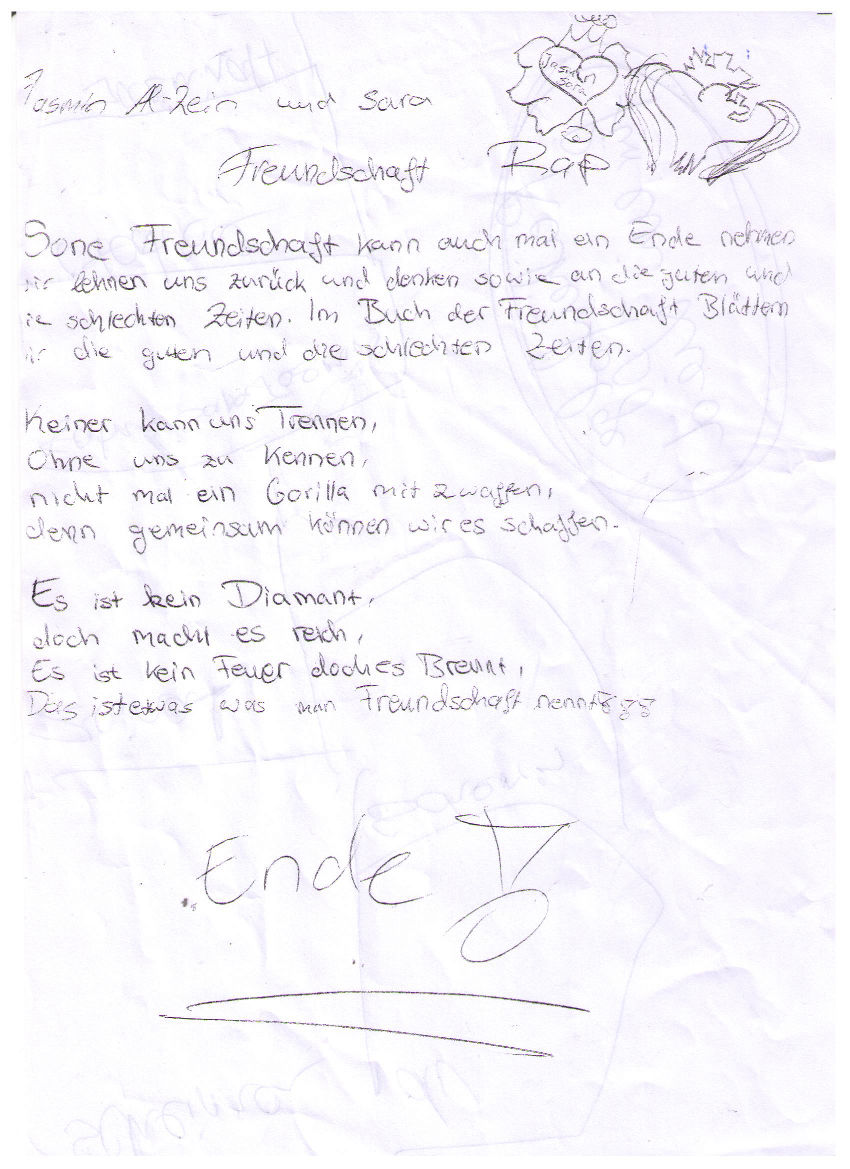 Jasmin Al-Zein und Sara
Jasmin
Sara
Freundschaft Rap
Sone Freundschaft kann auch mal ein Ende nehmen
ir lehnen uns zurück und denken sowie an die guten und
ie schlechten Zeiten. Im Buch der Freundschaft Blättern
ir die guten und die schlechten Zeiten.
Keiner kann uns Trennen,
Ohne uns zu kennen,
nicht mal ein Gorilla mit 2 waffen,
denn gemeinsam können wir es schaffen.
Es ist kein Diamant,
doch macht es reich,
Es ist kein Feuer doch es Brennt,
Das ist etwas was man Freundschaft nennt!!!
Ende !